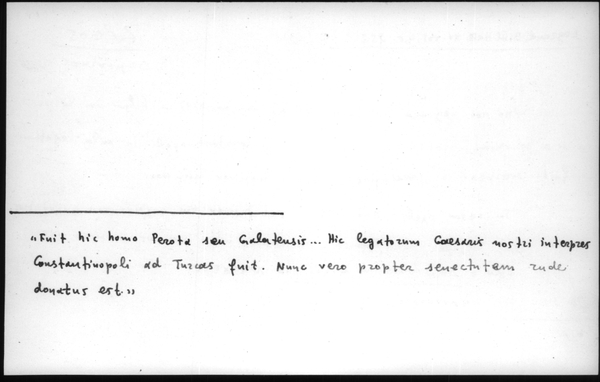 „Fuit hic homo Perota seu Galatensis... Hic legatorum Caesaris nostri interpres
Constantinopoli ad Turcas fuit. Nunc vero propter senectutem rude
donatus est.”